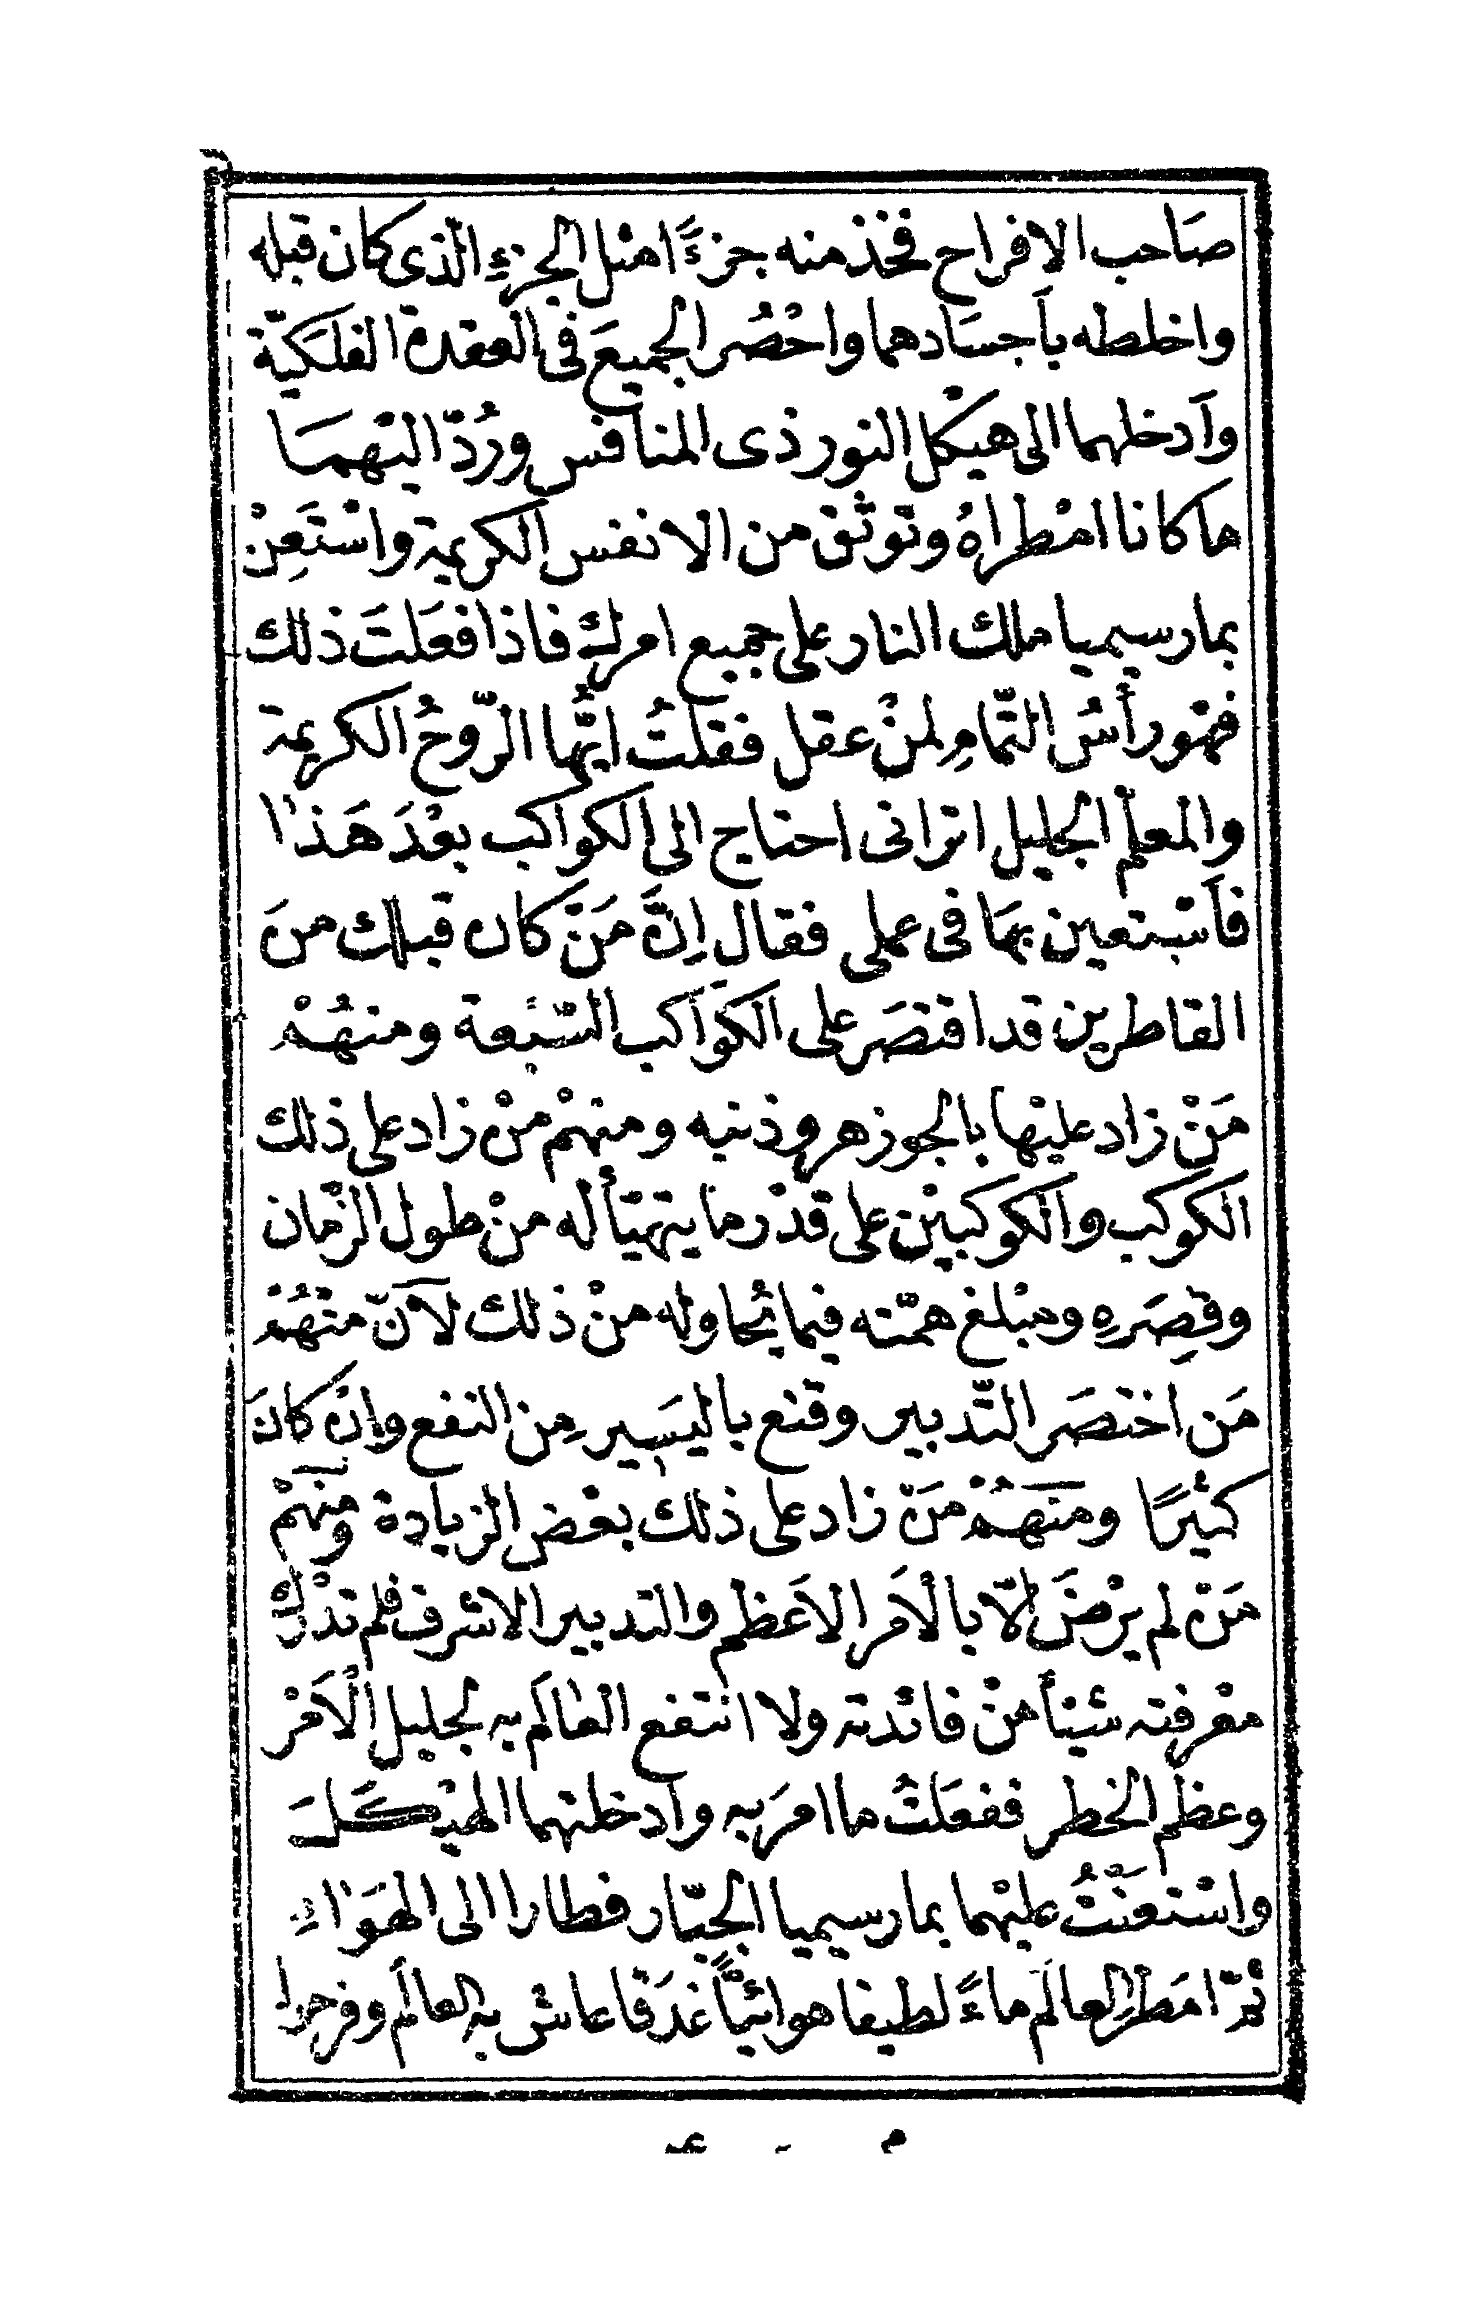 صَاحب الافراح فخذ منه جزءًا مثل الجزءِ الّذى كان قبله
واخلطه بأجسَادهما واحْصُر الجميعَ فى العقدة الفلكيّة
وأدخلهما الى هيكل النور ذى المنافس ورُدّ اليْهمَا
ما كانا امْطراهُ وتوثّق من الانفس الكريمة واسْتَعِنْ
بمارسيميا ملك النار على جميع امرك فاذا فعَلتَ ذلك
فهو رأسُ التّمامِ لمنْ عقل فقلتُ ايّها الرّوحُ الكريمة
والمعلّم الجليل اترانى احتاج الى الكواكب بعْدَ هَذا
فأسْتعين بهَا فى عملى فقال اِنَّ مَنْ كان قبلك منَ
القاطرين قد اقتصَر على الكواكب السّبْعة ومنهُمْ
مَنْ زاد عليْها بالجوزهر وذنبه ومنهْم منْ زاد على ذلك
الكوكب والكوكبيْن على قدْر ما يتهيّأ له منْ طول الزّمان
وقِصَرهِ ومبْلغ همّته فيما يُحاوله منْ ذلك لآنّ منْهُمْ
مَن اختصَر التّدبير وقنع باليسَير مِن النفع وإنْ كانَ
كثيْرًا ومنَهُمْ مَنْ زاد على ذلك بعْض الزيادة ومنهمْ
مَنْ لم يرْضَ الّا بالأمر الاَعظم والتدبير الاشرف فلم تدْرك
معْرفته شيْئاً منْ فائدته ولا انتفع العالَم به لجليل الْأمْر
وعظم الخطر ففعَلتُ ما امَر به وأدخلتهما الهيْكَلَ
واسْتعَنْتُ عليْهما بمارسيميا الجبّار فطارا الى الهَوَاءِ
ثمّ امَطرا العالَم ماءً لطيفا هوائيّاً غدَقا عاش به العالَم وفرحوا